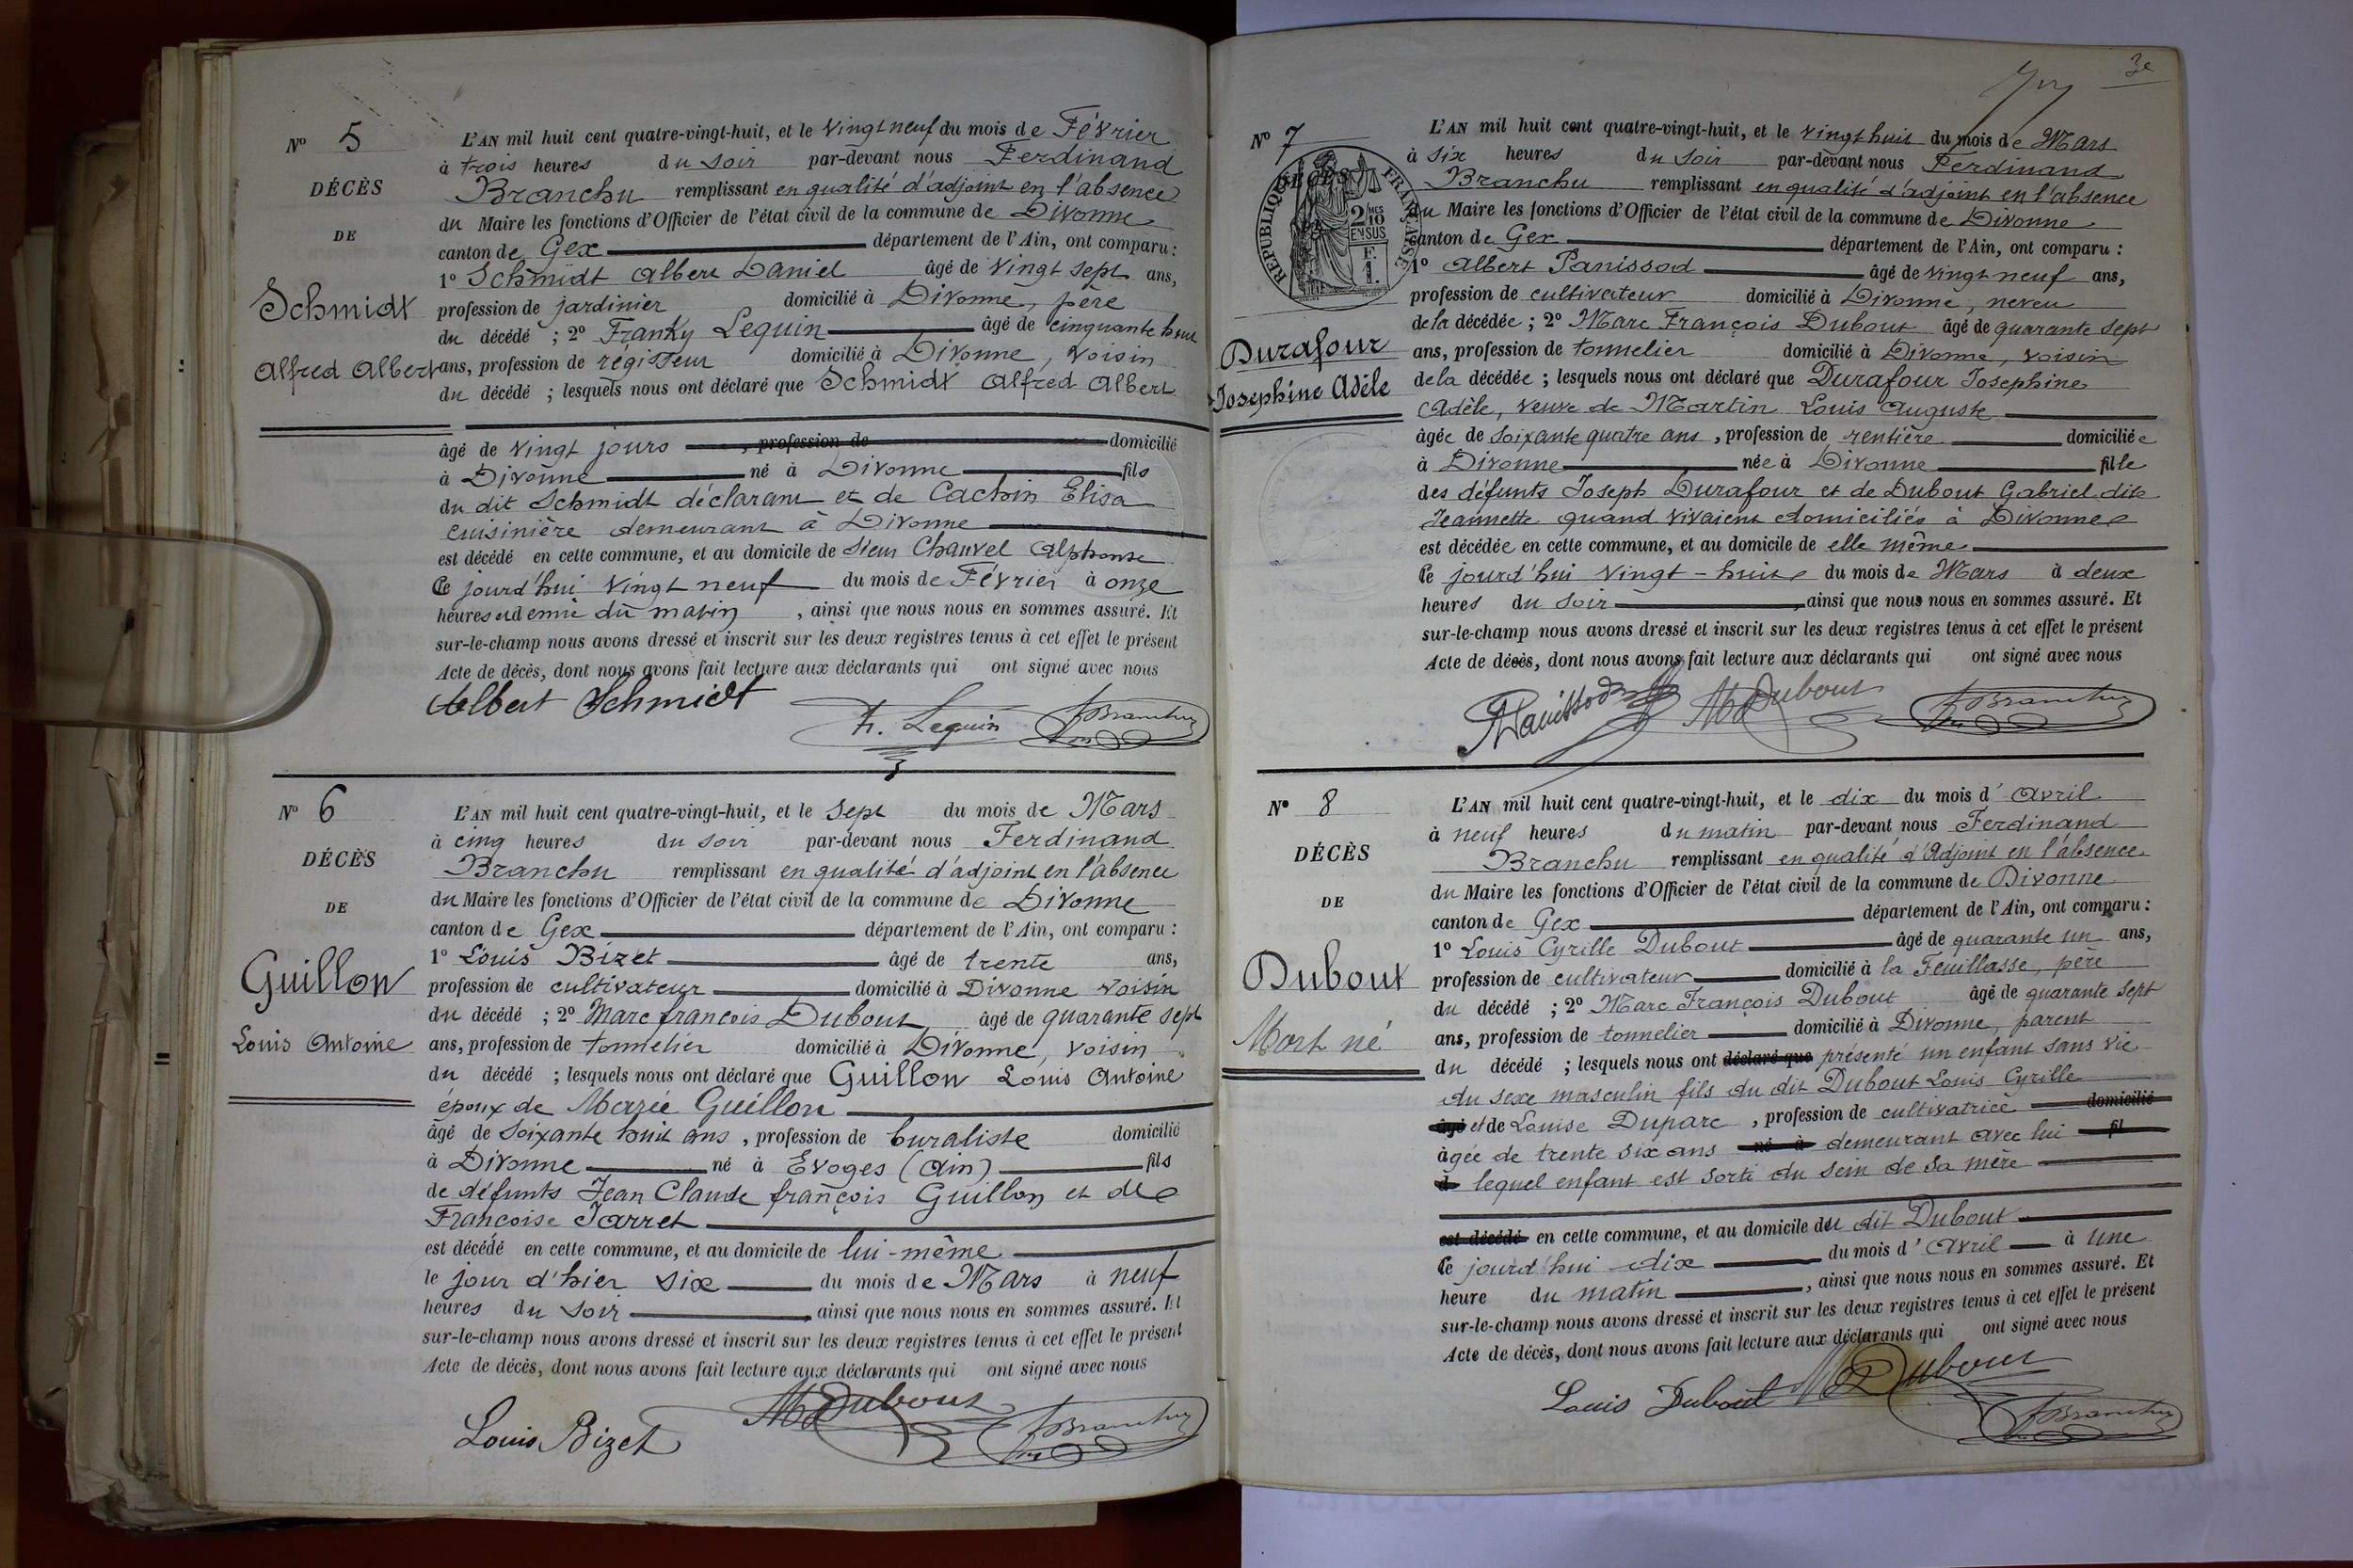 N° 5
DÉCÈS
DE
Schmidt
Alfred Albert
L'AN mil huit cent quatre-vingt-huit, et le vingt neuf du mois de Février
à trois heures du soir par-devant nous Ferdinand
Branchu remplissant en qualité d'adjoint en l'absence
du Maire les fonctions d'Officier de l'état civil de la commune de Divonne
canton de Gex département de l'Ain, ont comparu :
1° Schmidt Albert Daniel âgé de vingt sept ans,
profession de jardinier domicilié à Divonne, père
du décédé ; 2° Franky Lequin âgé de cinquante huit
ans, profession de régisseur domicilié à Divonne, voisin
du décédé ; lesquels nous ont déclaré que Schmidt Alfred Albert
âgé de vingt jours , profession de domicilié
à Divonne né à Divonne fils
du dit Schmidt déclarant et de Cachin Elisa
cuisinière demeurant à Divonne
est décédé en cette commune, et au domicile de sieur Chauvel Alphonse
Ce jourd'hui vingt neuf du mois de Février à onze
heures et demie du matin , ainsi que nous nous en sommes assuré. Et
sur-le-champ nous avons dressé et inscrit sur les deux registres tenus à cet effet le présent
Acte de décès, dont nous avons fait lecture aux déclarants qui ont signé avec nous
Albert Schmidt
F. Lequin
F Branchu
N° 6
DÉCÈS
DE
Guillon
Louis Antoine
L'AN mil huit cent quatre-vingt-huit, et le sept du mois de Mars
à cinq heures du soir par-devant nous Ferdinand
Branchu remplissant en qualité d'adjoint en l'absence
du Maire les fonctions d'Officier de l'état civil de la commune de Divonne
canton de Gex département de l'Ain, ont comparu :
1° Louis Bizet âgé de trente ans,
profession de cultivateur domicilié à Divonne voisin
du décédé ; 2° Marc françois Dubout âgé de quarante sept
ans, profession de tonnelier domicilié à Divonne, voisin
du décédé ; lesquels nous ont déclaré que Guillon Louis Antoine
époux de Marie Guillon
âgé de soixante huit ans , profession de buraliste domicilié
à Divonne né à Evoges (Ain) fils
de défunts Jean Claude françois Guillon et de
Françoise Jarret
est décédé en cette commune, et au domicile de lui-même
le jour d'hier six du mois de Mars à neuf
heures du soir , ainsi que nous nous en sommes assuré. Et
sur-le-champ nous avons dressé et inscrit sur les deux registres tenus à cet effet le présent
Acte de décès, dont nous avons fait lecture aux déclarants qui ont signé avec nous
Louis Bizet
MF Dubout
F Branchu
3e
N° 7
DÉCÈS
DE
RÉPUBLIQUE FRANÇAISE
2/10 EN SUS
F.
1.
Durafour
Josephine Adèle
L'AN mil huit cent quatre-vingt-huit, et le vingt huit du mois de Mars
à six heures du soir par-devant nous Ferdinand
Branchu remplissant en qualité d'adjoint en l'absence
du Maire les fonctions d'Officier de l'état civil de la commune de Divonne
canton de Gex département de l'Ain, ont comparu :
1° Albert Panissod âgé de vingt neuf ans,
profession de cultivateur domicilié à Divonne, neveu
de la décédée ; 2° Marc François Dubout âgé de quarante sept
ans, profession de tonnelier domicilié à Divonne, voisin
de la décédée ; lesquels nous ont déclaré que Durafour Josephine
Adèle, veuve de Martin Louis Auguste
âgée de soixante quatre ans , profession de rentière domiciliée
à Divonne née à Divonne fille
des défunts Joseph Durafour et de Dubout Gabriel dite
Jeannette quand vivaient domiciliés à Divonne
est décédée en cette commune, et au domicile de elle même
Ce jourd'hui vingt-huit du mois de Mars à deux
heures du soir , ainsi que nous nous en sommes assuré. Et
sur-le-champ nous avons dressé et inscrit sur les deux registres tenus à cet effet le présent
Acte de décès, dont nous avons fait lecture aux déclarants qui ont signé avec nous
APanissod
MF Dubout
F Branchu
N° 8
DÉCÈS
DE
Dubout
Mort né
L'AN mil huit cent quatre-vingt-huit, et le dix du mois d'Avril
à neuf heures du matin par-devant nous Ferdinand
Branchu remplissant en qualité d'Adjoint en l'absence
du Maire les fonctions d'Officier de l'état civil de la commune de Divonne
canton de Gex département de l'Ain, ont comparu :
1° Louis Cyrille Dubout âgé de quarante un ans,
profession de cultivateur domicilié à la Feuillasse, père
du décédé ; 2° Marc François Dubout âgé de quarante sept
ans, profession de tonnelier domicilié à Divonne, parent
du décédé ; lesquels nous ont déclaré que présenté un enfant sans vie
du sexe masculin fils du dit Dubout Louis Cyrille
âgé et de Louise Duparc , profession de cultivatrice domicilié
âgée de trente six ans né à demeurant avec lui fil
d lequel enfant est sorti du sein de sa mère
est décédé en cette commune, et au domicile du dit Dubout
Ce jourd'hui dix du mois d'Avril à une
heure du matin , ainsi que nous nous en sommes assuré. Et
sur-le-champ nous avons dressé et inscrit sur les deux registres tenus à cet effet le présent
Acte de décès, dont nous avons fait lecture aux déclarants qui ont signé avec nous
Louis Dubout
MF Dubout
F Branchu